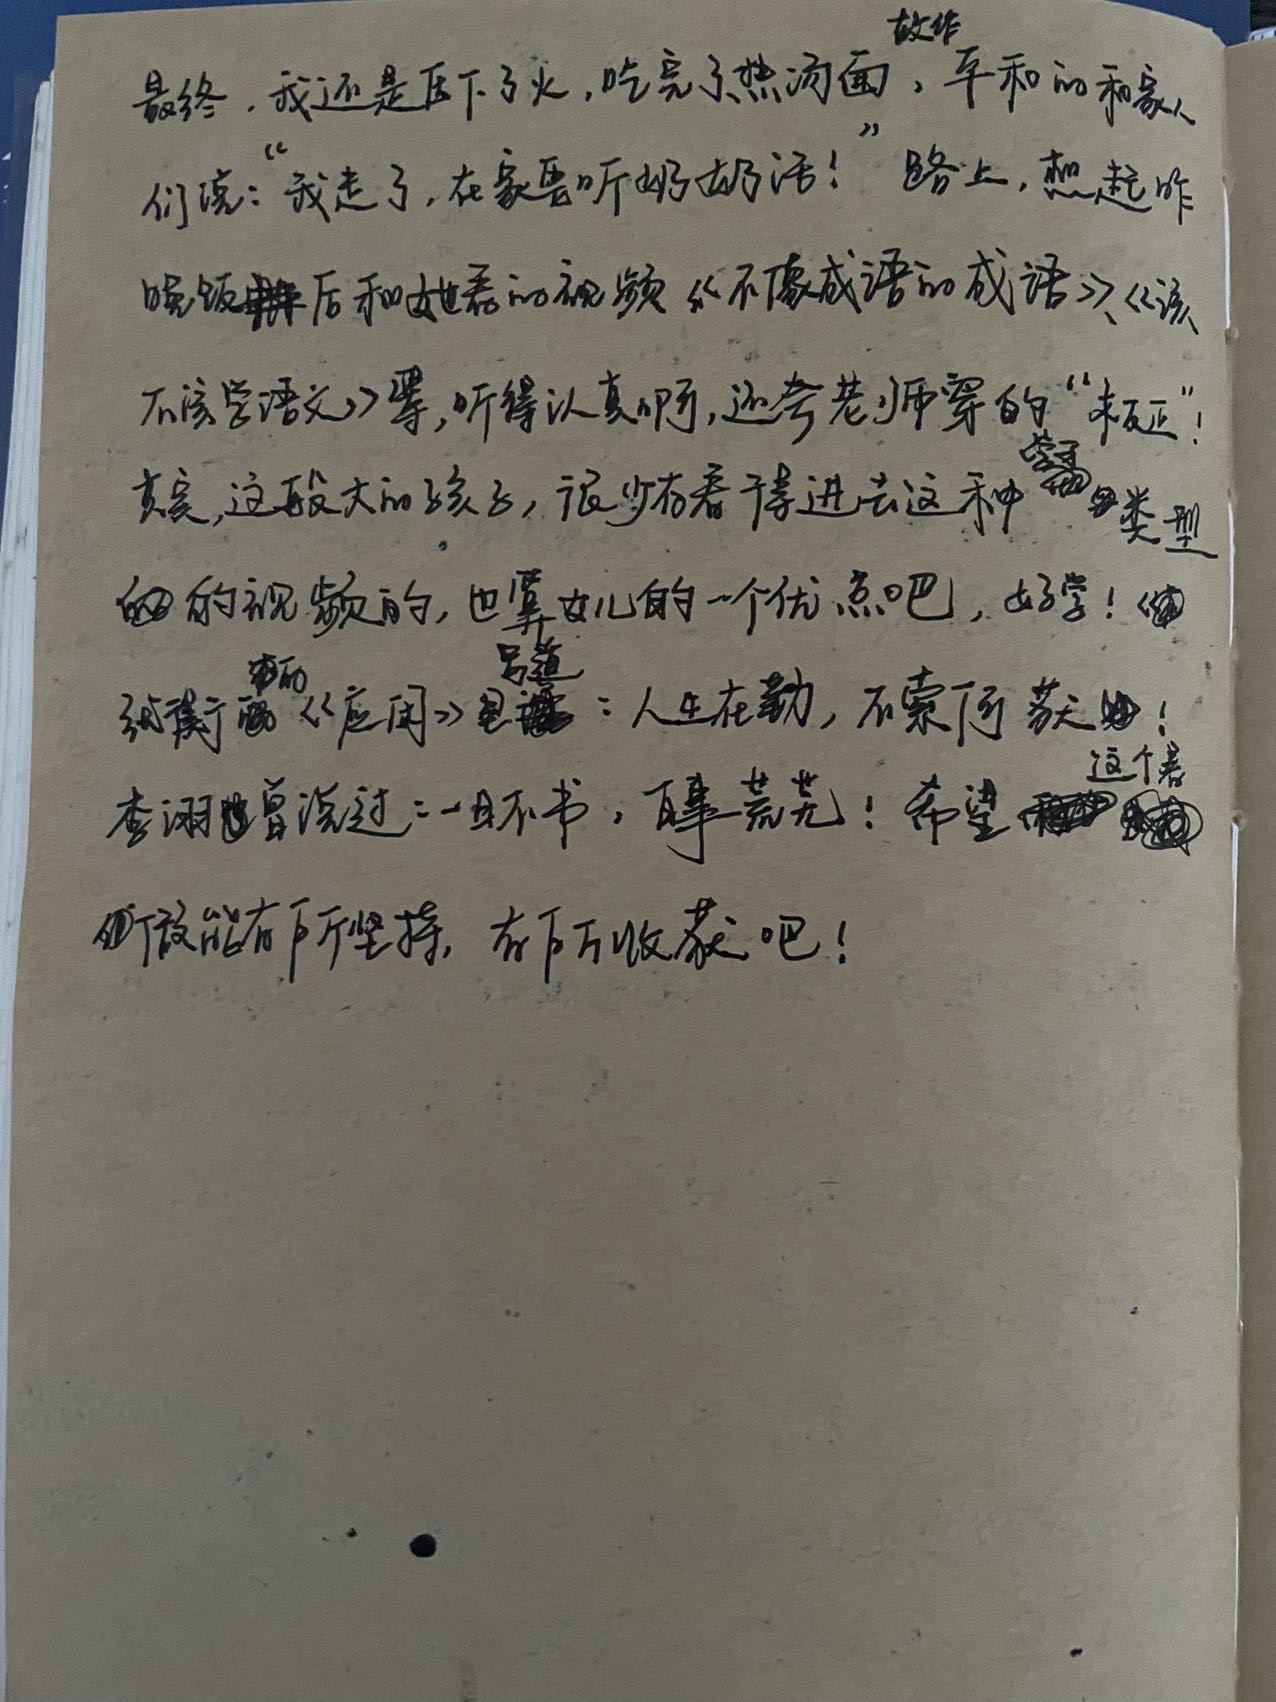 最终，我还是压下了火，吃完了热汤面，故作平和的和家人
们说：“我走了，在家要听奶奶话！”路上，想起昨
晚饭后和她看的视频《不像成语的成语》、《该
不该学语文》等，听得认真啊，还夸老师穿的“板正”！
其实，这般大的孩子，很少有看得进去这种学习类型
的视频的，也算女儿的一个优点吧，好学！
张衡的《应闲》曰道：人生在勤，不索何获！
李渊曾说过：一日不书，百事荒芜！希望这个暑
假能有所坚持，有所收获吧！